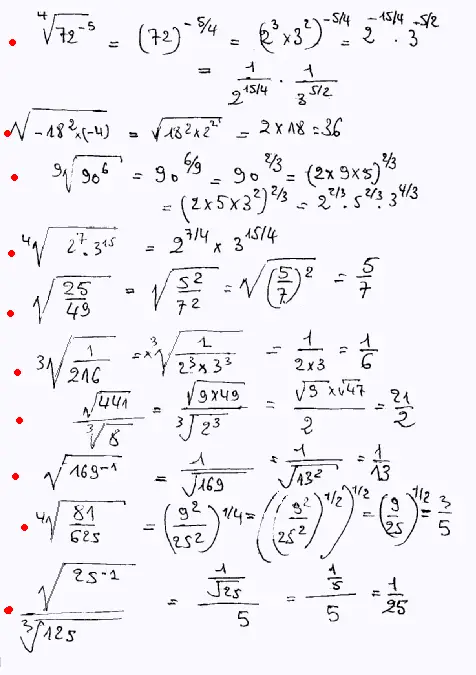 • ⁴√72⁻⁵ = (72)^(-5/4) = (2³×3²)^(-5/4) = 2^(-15/4) · 3^(-5/2)
= 1/2^(15/4) · 1/3^(5/2)
• √(-18²×(-4)) = √(18²×2²) = 2×18 = 36
• ⁹√90⁶ = 90^(6/9) = 90^(2/3) = (2×9×5)^(2/3)
= (2×5×3²)^(2/3) = 2^(2/3) · 5^(2/3) · 3^(4/3)
• ⁴√(2⁷·3¹⁵) = 2^(7/4) × 3^(15/4)
• √(25/49) = √(5²/7²) = √((5/7)²) = 5/7
• ³√(1/216) = ³√(1/(2³×3³)) = 1/(2×3) = 1/6
• √441/³√8 = √(9×49)/³√2³ = (√9×√47)/2 = 21/2
• √(169⁻¹) = 1/√169 = 1/√13² = 1/13
• ⁴√(81/625) = (9²/25²)^(1/4) = ((9²/25²)^(1/2))^(1/2) = (9/25)^(1/2) = 3/5
• √(25⁻¹)/³√125 = (1/√25)/5 = (1/5)/5 = 1/25